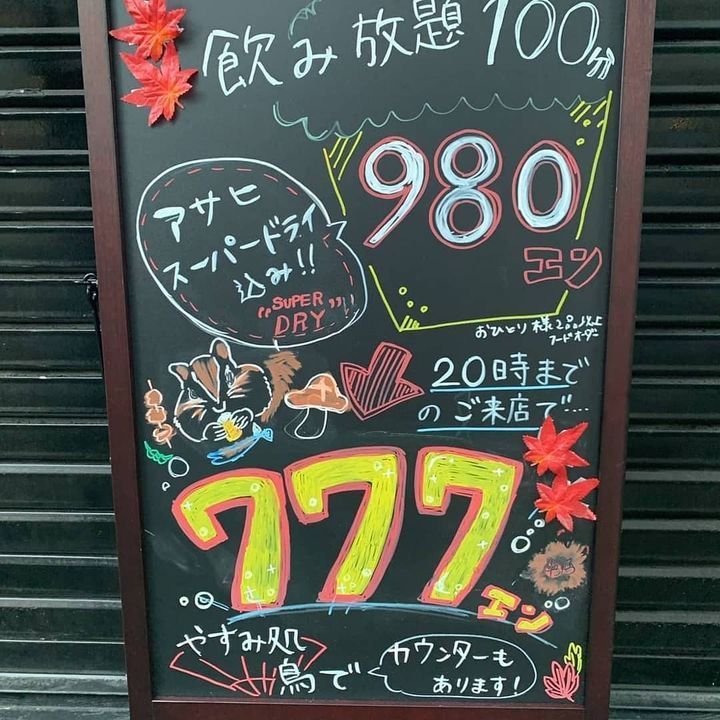 飲み放題 100分
980
エン
アサヒ
スーパードライ
込み!!
"SUPER DRY"
おひとり様2品以上
フードオーダー
20時まで
のご来店で....
777
エン
やすみ処
鳥で
カウンターも
あります!